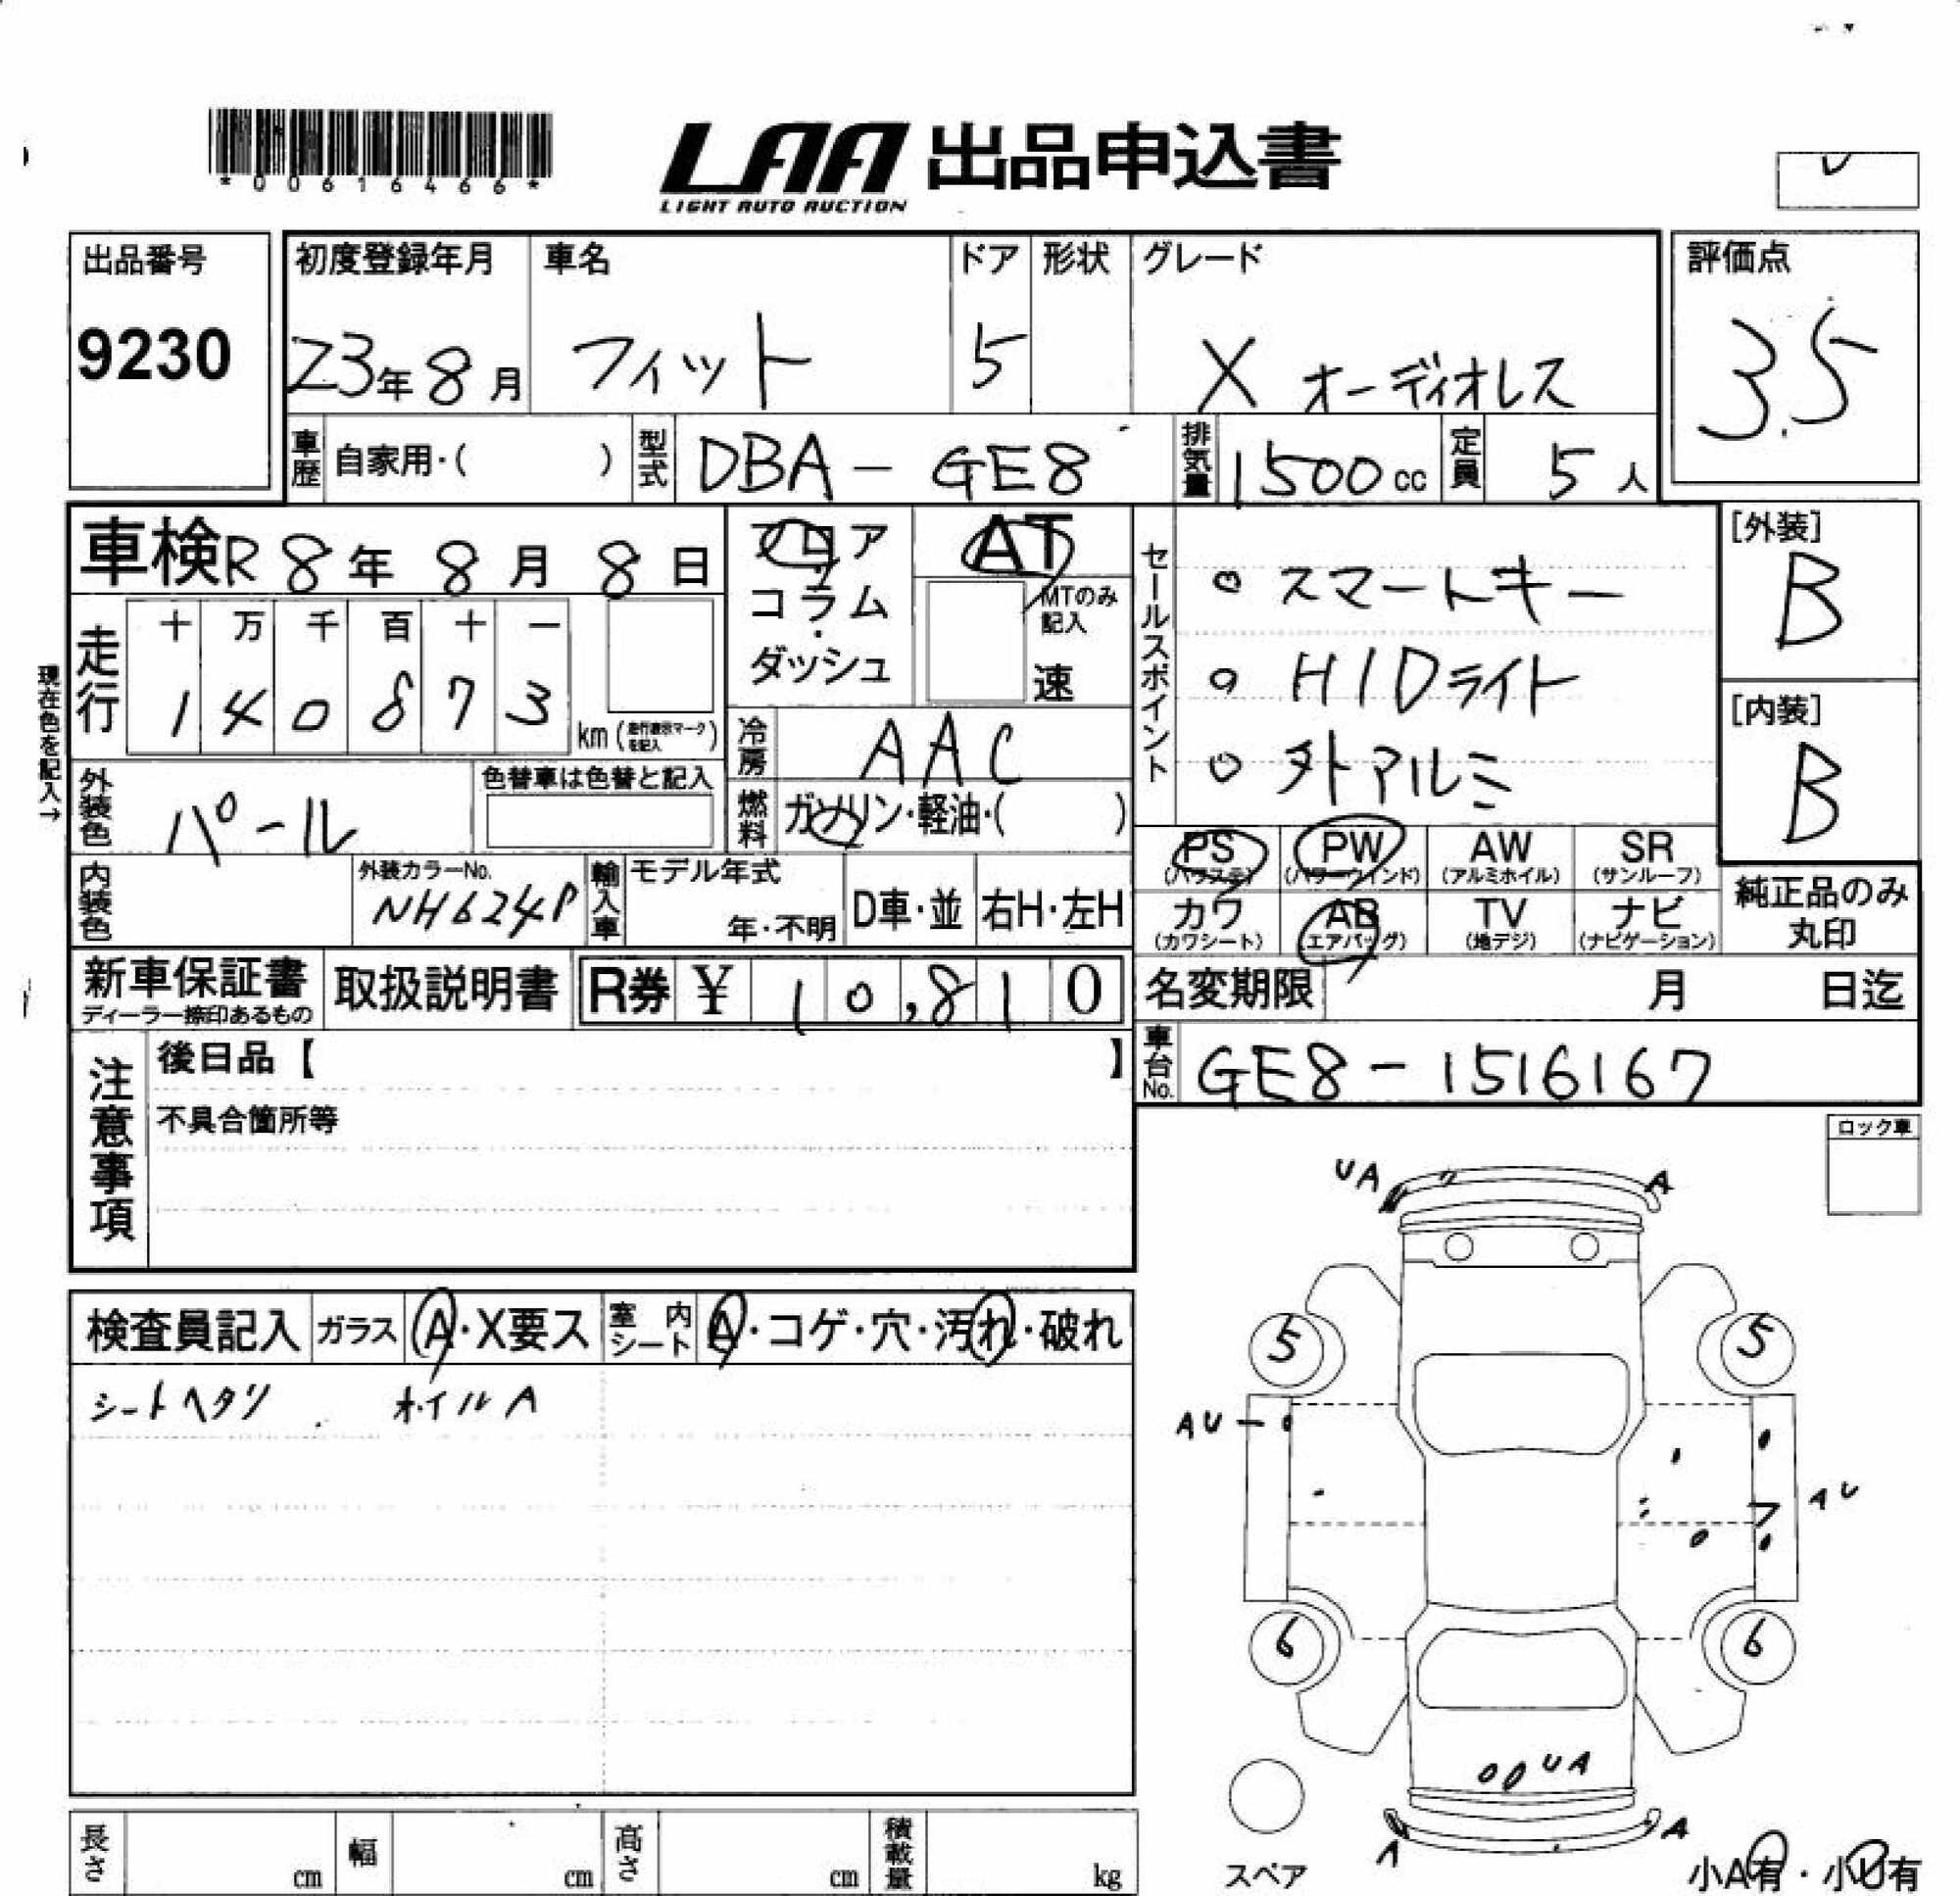 *00616466*
LAA 出品申込書
LIGHT AUTO AUCTION
出品番号
9230
初度登録年月 車名 ドア 形状 グレード
23年8月 フィット 5 X オーディオレス
評価点
3.5
車歴 自家用・( ) 型式 DBA-GE8 排気量 1500cc 定員 5人
車検 R8年8月8日
フロア
コラム
・
ダッシュ
AT
MTのみ
記入
速
セールスポイント
○ スマートキー
○ HIDライト
○ 外アルミ
[外装]
B
[内装]
B
現在色を記入→
走行
十 万 千 百 十 一
1 4 0 8 7 3
km (走行表示マークを記入)
冷房 AAC
外装色 パール
色替車は色替と記入
燃料 ガソリン・軽油・( )
PS PW AW SR
(パワステ) (パワーウインド) (アルミホイル) (サンルーフ)
カワ AB TV ナビ
(カワシート) (エアバッグ) (地デジ) (ナビゲーション)
純正品のみ
丸印
内装色 外装カラーNo.
NH624P
輸入車 モデル年式
年・不明 D車・並 右H・左H
新車保証書
ディーラー捺印あるもの
取扱説明書 R券 ¥ 10,810
名変期限 月 日迄
車台No. GE8-1516167
注意事項
後日品【 】
不具合箇所等
ロック車
検査員記入 ガラス A・X要ス 室内シート A・コゲ・穴・汚れ・破れ
シートヘタリ ホイルA
UA A
5 5
AU
AU
6 6
UA
A A
スペア
小A有・小U有
長さ cm 幅 cm 高さ cm 積載量 kg